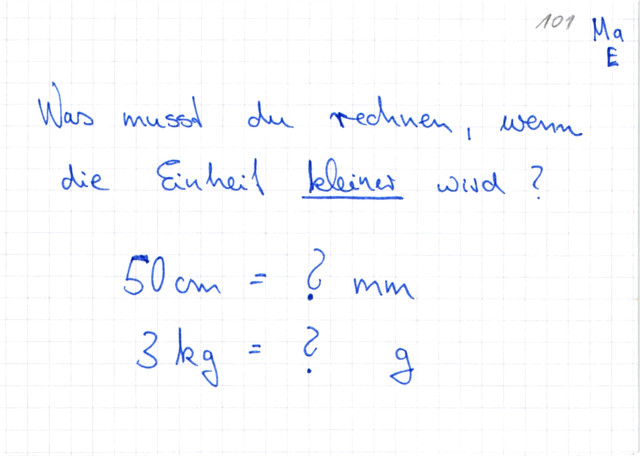 101 Ma
E
Was musst du rechnen, wenn
die Einheit kleiner wird?
50 cm = ? mm
3 kg = ? g